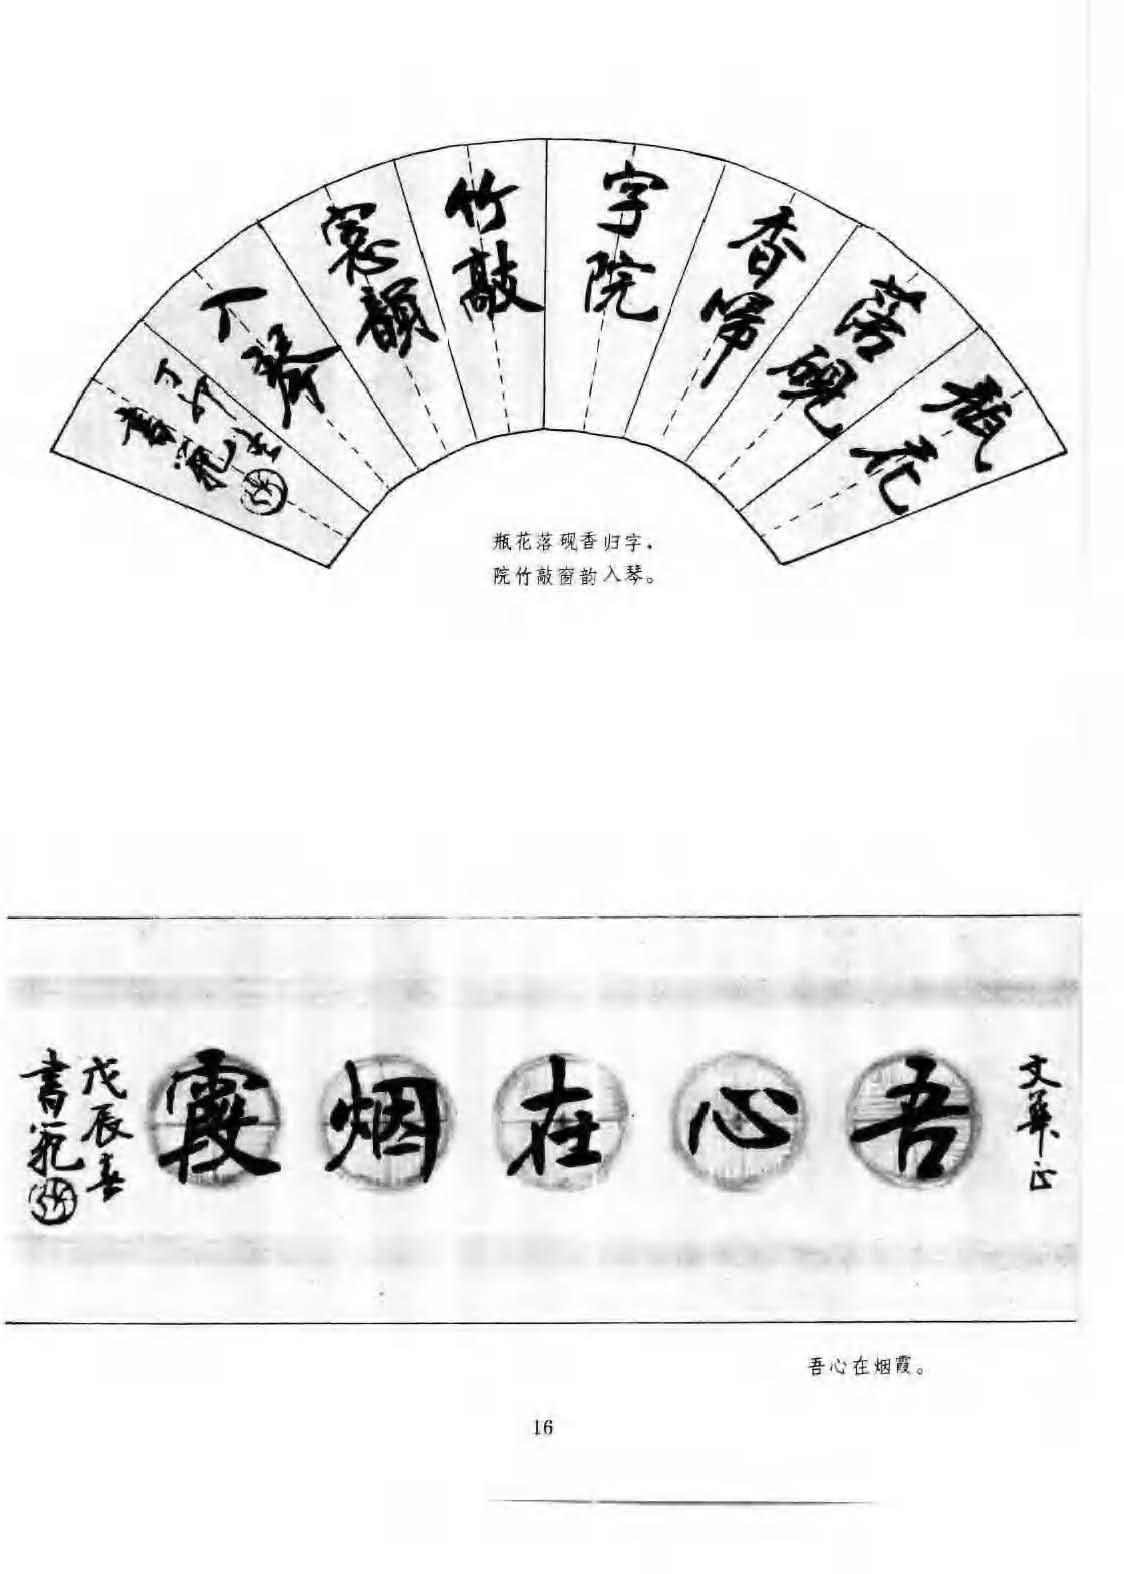 瓶花
落砚
香归
字院
竹敲
窓韻
入琴
丁卯
書範
瓶花落砚香归字,
院竹敲窗韵入琴。
文华正
吾心在烟霞
戊辰春
書範
吾心在烟霞。
16